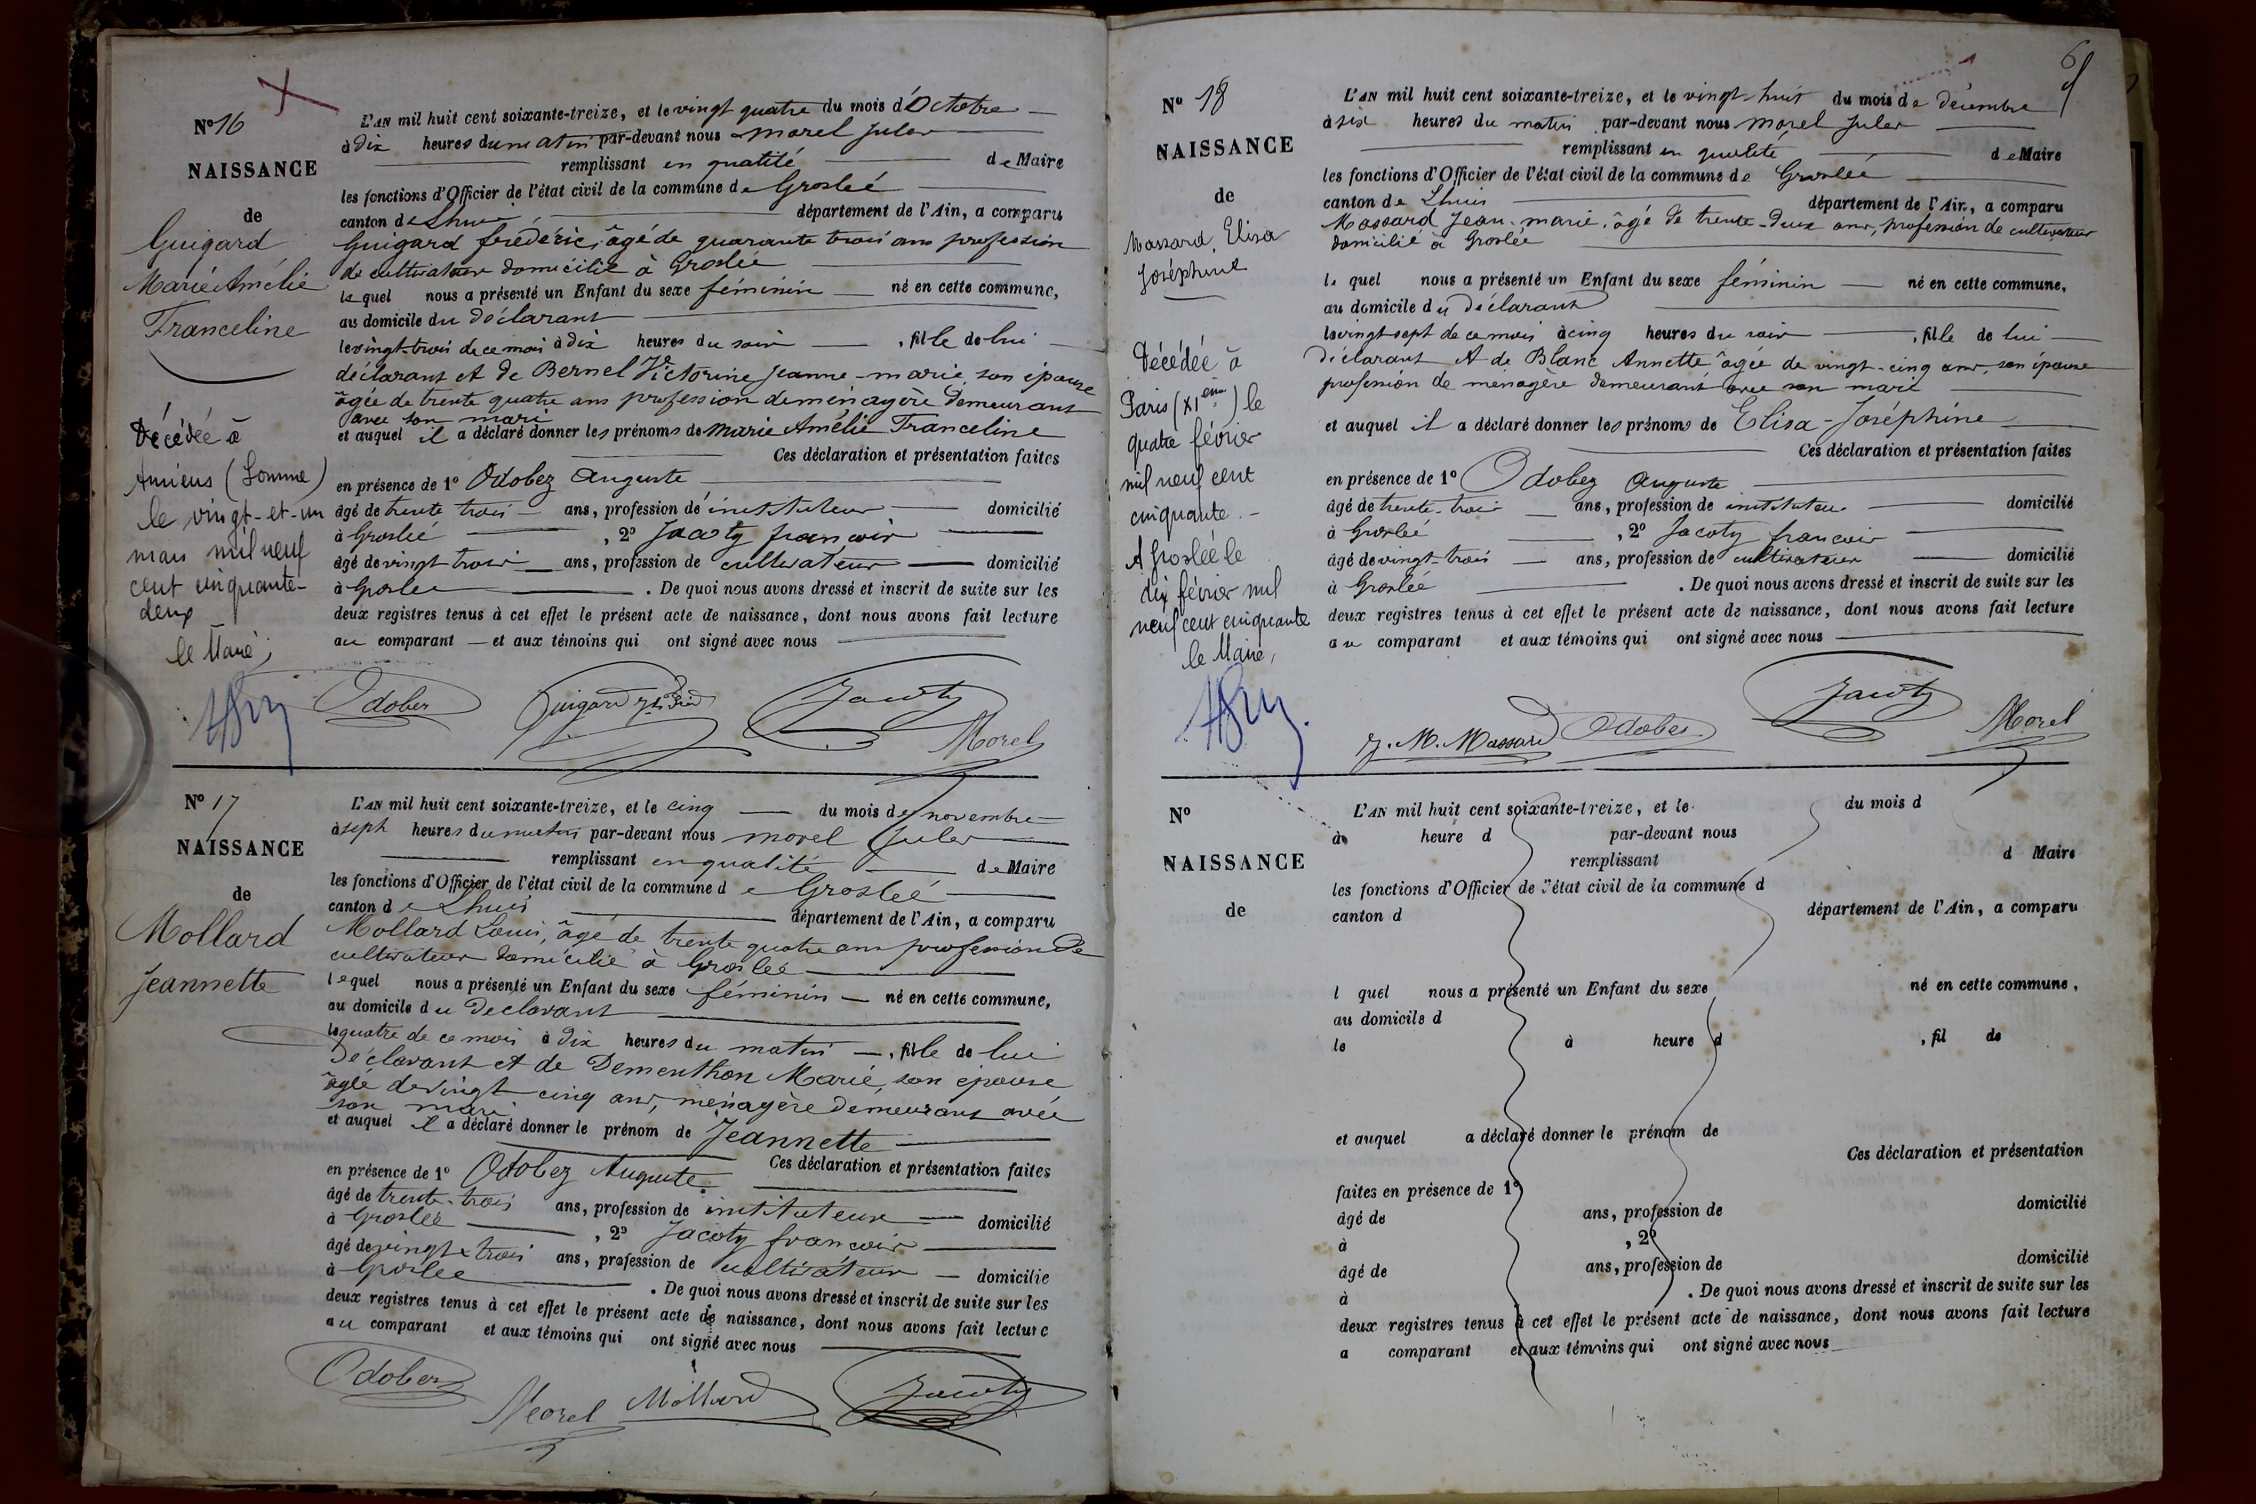 N° 16
NAISSANCE
de
Guigard
Marie Amélie
Franceline
Décédée à
Amiens (Somme)
le vingt-et-un
mars mil neuf
cent cinquante-
deux
le Maire,
L'AN mil huit cent soixante-treize, et le vingt quatre du mois d'Octobre
à dix heures du matin par-devant nous Morel Jules
remplissant en qualité de Maire
les fonctions d'Officier de l'état civil de la commune de Groslée
canton de Lhuis département de l'Ain, a comparu
Guigard frédéric, âgé de quarante trois ans profession
de cultivateur domicilié à Groslée
lequel nous a présenté un Enfant du sexe féminin né en cette commune,
au domicile du déclarant
le vingt-trois de ce mois à dix heures du soir , fille de lui
déclarant et de Bernel Victorine Jeanne-marie, son épouse
âgée de trente quatre ans profession de ménagère demeurant
avec son mari
et auquel il a déclaré donner les prénoms de Marie Amélie Franceline
Ces déclaration et présentation faites
en présence de 1° Odobez Auguste
âgé de trente trois ans, profession de instituteur domicilié
à Groslée , 2° Jacoty françois
âgé de vingt trois ans, profession de cultivateur domicilié
à Groslée . De quoi nous avons dressé et inscrit de suite sur les
deux registres tenus à cet effet le présent acte de naissance, dont nous avons fait lecture
au comparant et aux témoins qui ont signé avec nous
Odobez Guigard Jacoty
Morel
N° 17
NAISSANCE
de
Mollard
Jeannette
L'AN mil huit cent soixante-treize, et le cinq du mois de novembre
à sept heures du matin par-devant nous Morel Jules
remplissant en qualité de Maire
les fonctions d'Officier de l'état civil de la commune de Groslée
canton de Lhuis département de l'Ain, a comparu
Mollard Louis, âgé de trente quatre ans profession de
cultivateur domicilié à Groslée
lequel nous a présenté un Enfant du sexe féminin né en cette commune,
au domicile du Déclarant
le quatre de ce mois à dix heures du matin , fille de lui
Déclarant et de Dementhon Marie, son épouse
âgée de vingt cinq ans, ménagère demeurant avec
son mari
et auquel il a déclaré donner le prénom de Jeannette
Ces déclaration et présentation faites
en présence de 1° Odobez Auguste
âgé de trente-trois ans, profession de instituteur domicilié
à Groslée , 2° Jacoty françois
âgé de vingt trois ans, profession de cultivateur domicilié
à Groslée . De quoi nous avons dressé et inscrit de suite sur les
deux registres tenus à cet effet le présent acte de naissance, dont nous avons fait lecture
au comparant et aux témoins qui ont signé avec nous
Odobez Morel Mollard Jacoty
N° 18
NAISSANCE
de
Massard, Elisa
Joséphine
Décédée à
Paris (XIème) le
quatre février
mil neuf cent
cinquante.-
A Groslée le
dix février mil
neuf cent cinquante
le Maire,
L'AN mil huit cent soixante-treize, et le vingt-huit du mois de décembre
à six heures du matin par-devant nous Morel Jules
remplissant en qualité de Maire
les fonctions d'Officier de l'état civil de la commune de Groslée
canton de Lhuis département de l'Ain, a comparu
Massard Jean-marie, âgé de trente-deux ans, profession de cultivateur
domicilié à Groslée
lequel nous a présenté un Enfant du sexe féminin né en cette commune,
au domicile du déclarant
le vingt-sept de ce mois à cinq heures du soir , fille de lui
déclarant et de Blanc Annette âgée de vingt-cinq ans, son épouse
profession de ménagère demeurant avec son mari
et auquel il a déclaré donner les prénoms de Elisa-Joséphine
Ces déclaration et présentation faites
en présence de 1° Odobez Auguste
âgé de trente-trois ans, profession de instituteur domicilié
à Groslée , 2° Jacoty françois
âgé de vingt-trois ans, profession de cultivateur domicilié
à Groslée . De quoi nous avons dressé et inscrit de suite sur les
deux registres tenus à cet effet le présent acte de naissance, dont nous avons fait lecture
au comparant et aux témoins qui ont signé avec nous
J. M. Massard Odobez Jacoty Morel
N°
NAISSANCE
de
L'AN mil huit cent soixante-treize, et le du mois d
à heure d par-devant nous
remplissant d Maire
les fonctions d'Officier de l'état civil de la commune d
canton d département de l'Ain, a comparu
l quel nous a présenté un Enfant du sexe né en cette commune,
au domicile d
le à heure d , fil de
et auquel a déclaré donner le prénom de
Ces déclaration et présentation
faites en présence de 1°
âgé de ans, profession de domicilié
à , 2°
âgé de ans, profession de domicilié
à . De quoi nous avons dressé et inscrit de suite sur les
deux registres tenus à cet effet le présent acte de naissance, dont nous avons fait lecture
a comparant et aux témoins qui ont signé avec nous